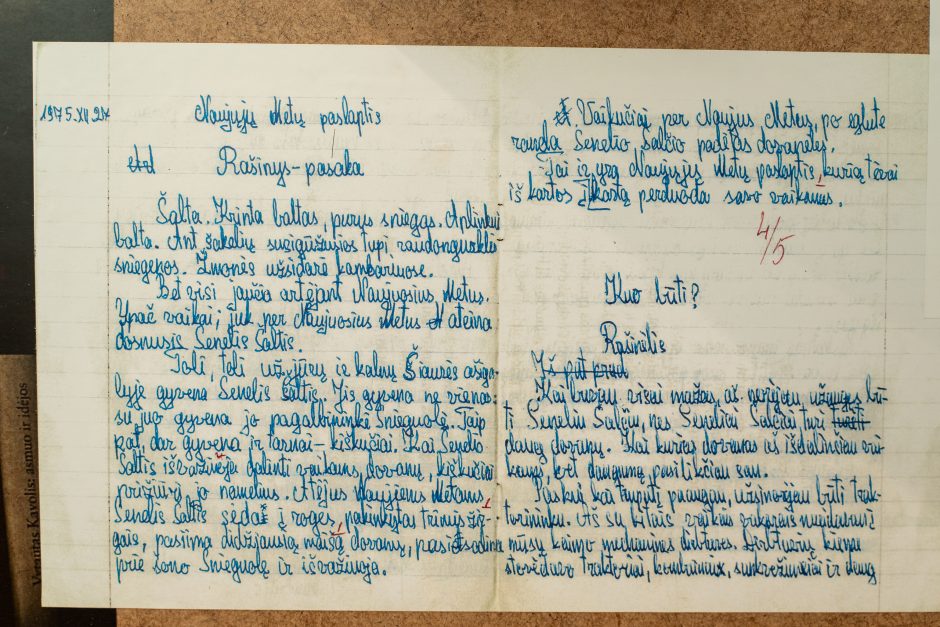 1975.XII.27
Naujųjų Metų paslaptis
Rašinys-pasaka
Šalta. Krinta baltas, purus sniegas. Aplinkui
balta. Ant šakelių susigūžusios tupi raudongurklės
sniegenos. Žmonės užsidarė kambariuose.
Bet visi jaučia artėjant Naujuosius Metus.
Ypač vaikai; juk per Naujuosius Metus ateina
dosnusis Senelis Šaltis.
Toli, toli už jūrų ir kalnų Šiaurės ašiga-
lyje gyvena Senelis Šaltis. Jis gyvena ne vienas:
su juo gyvena jo pagalbininkė Snieguolė. Taip
pat dar gyvena ir tarnai-kiškučiai. Kai Senelis
Šaltis išvažiuoja dalinti vaikams dovanų, kiškučiai
prižiūri jo namelius. Atėjus Naujiems Metams,
Senelis Šaltis sėda į roges, pakinkytas trimis žir-
gais, pasiima didžiausią maišą dovanų, pasisodina
prie šono Snieguolę ir išvažiuoja.
Vaikučiai per Naujus Metus po eglute
randa Senelio Šalčio padėtas dovanėles.
Tai ir yra Naujųjų Metų paslaptis, kurią tėvai
iš kartos į kartą perduoda savo vaikams.
4/5
Kuo būti?
Rašinėlis
Iš pat prad
Kai buvau visai mažas, aš norėjau užaugęs bū-
ti Seneliu Šalčiu, nes Seneliai Šalčiai turi
daug dovanų. Kai kurias dovanas aš išdalinčiau vai-
kams, bet daugumą pasilikčiau sau.
Paskui kai truputį paaugau, užsinorėjau būti trak-
torininku. Aš su kitais vaikais vakarais nueidavau į
mūsų kaimo mechanines dirbtuves. Dirbtuvių kieme
stovėdavo traktoriai, kombainai, sunkvežimiai ir daug
Vytautas Kavolis: asmuo ir idėjos